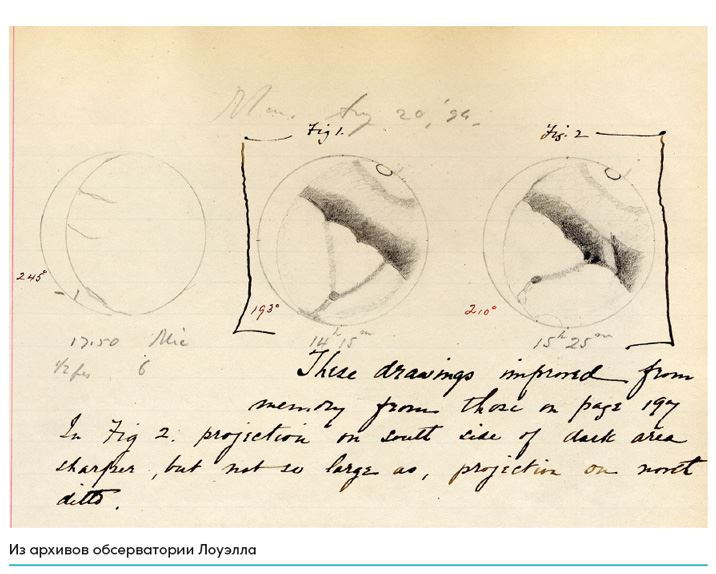 Mon. Aug 20, '94.
Fig 1.
Fig. 2
245°
193°
210°
17.50 Mic
1/2 fes 6
14ʰ 15ᵐ
15ʰ 25ᵐ
These drawings improved from
memory from those on page 197
In Fig 2. projection on south side of dark area
sharper, but not so large as, projection on north
ditto.
Из архивов обсерватории Лоуэлла